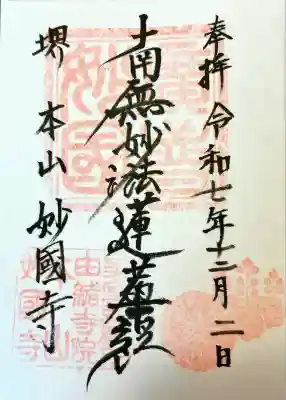 奉拝 令和七年十二月二日
南無妙法蓮華經
堺 本山 妙國寺
由緒寺院
妙國寺